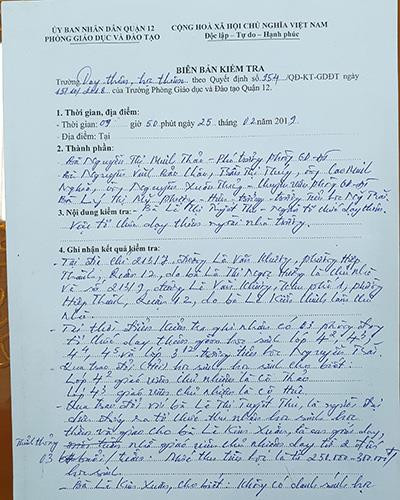 ỦY BAN NHÂN DÂN QUẬN 12 CỘNG HOÀ XÃ HỘI CHỦ NGHĨA VIỆT NAM
PHÒNG GIÁO DỤC VÀ ĐÀO TẠO Độc lập – Tự do – Hạnh phúc
BIÊN BẢN KIỂM TRA
Trường Dạy thêm, học thêm theo Quyết định số 354/QĐ-KT-GDĐT ngày
của Trưởng Phòng Giáo dục và Đào tạo Quận 12.
1. Thời gian, địa điểm:
- Thời gian: 09 giờ 50 phút ngày 25 tháng 02 năm 2019
- Địa điểm: Tại
2. Thành phần:
- Bà Nguyễn Thị Minh Thảo - Phó trưởng phòng GD-ĐT
- Bà Nguyễn Vĩnh Bảo Châu, Trần Thị Thúy, ông Cao Minh
ông Nguyễn Xuân - Chuyên viên phòng GD-ĐT
- Bà Lý Thị Mỹ Phượng - Hiệu trưởng - trường Tiểu học Ng Trãi
3. Nội dung kiểm tra: - Bà Lê Thị Tuyết Thu - Người tổ chức dạy thêm
Việc tổ chức dạy thêm ngoài nhà trường.
4. Ghi nhận kết quả kiểm tra:
- Tại địa chỉ 215/7, đường Lê Văn Khương, phường Hiệp
Thành, Quận 12, do bà Lê Thị Ngọc Hường là chủ nhà
và số 215/9, đường Lê Văn Khương, khu phố 1, phường
Hiệp Thành, Quận 12, do bà Lê Kiều làm chủ
nhà.
- Tại thời điểm kiểm tra ghi nhận có 03 phòng dạy
tổ chức dạy thêm gồm học sinh lớp 4², 4³,
4⁴, 4⁵ và lớp 3¹² trường tiểu học Nguyễn Trãi.
- Qua trao đổi với học sinh, học sinh cho biết:
Lớp 4² giáo viên chủ nhiệm là cô Thảo
Lớp 4³ giáo viên chủ nhiệm là cô Huê
- Qua trao đổi với bà Lê Thị Tuyết Thu, là người đại
diện đứng ra tổ chức thu nhận học sinh học
thêm và giao cho Bà Lê Kiều Xuân,
nhờ giáo viên chủ nhiệm dạy từ 2 đến
03 buổi/tuần. Mức thu tiền học là từ 250.000 - 300.000đ/
học sinh
- Bà Lê Kiều Xuân, cho biết: Không có danh sách học